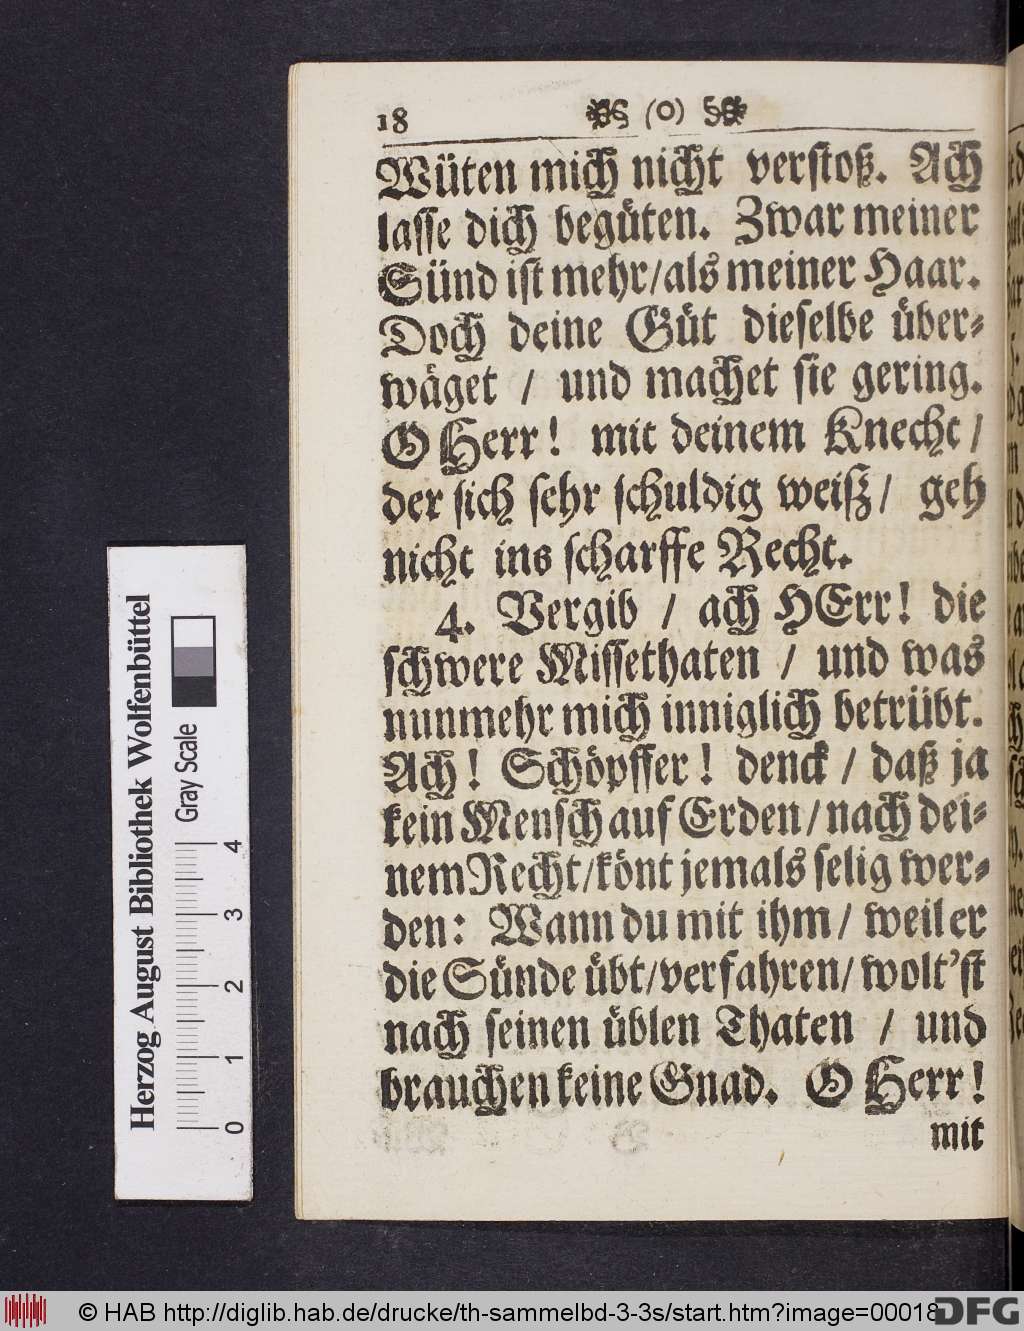 18 (o)
Wüten mich nicht verstoß. Ach
lasse dich begüten. Zwar meiner
Sünd ist mehr/als meiner Haar.
Doch deine Güt dieselbe über-
wäget / und machet sie gering.
O Herr! mit deinem Knecht /
der sich sehr schuldig weiß/ geh
nicht ins scharffe Recht.
4. Vergib / ach HErr! die
schwere Missethaten / und was
nunmehr mich inniglich betrübt.
Ach! Schöpffer! denck / daß ja
kein Mensch auf Erden/nach dei-
nem Recht/könt jemals selig wer-
den: Wann du mit ihm/ weil er
die Sünde übt/verfahren/ wolt'st
nach seinen üblen Thaten / und
brauchen keine Gnad. O Herr!
mit
Herzog August Bibliothek Wolfenbüttel
Gray Scale
0 1 2 3 4
© HAB http://diglib.hab.de/drucke/th-sammelbd-3-3s/start.htm?image=00018
DFG